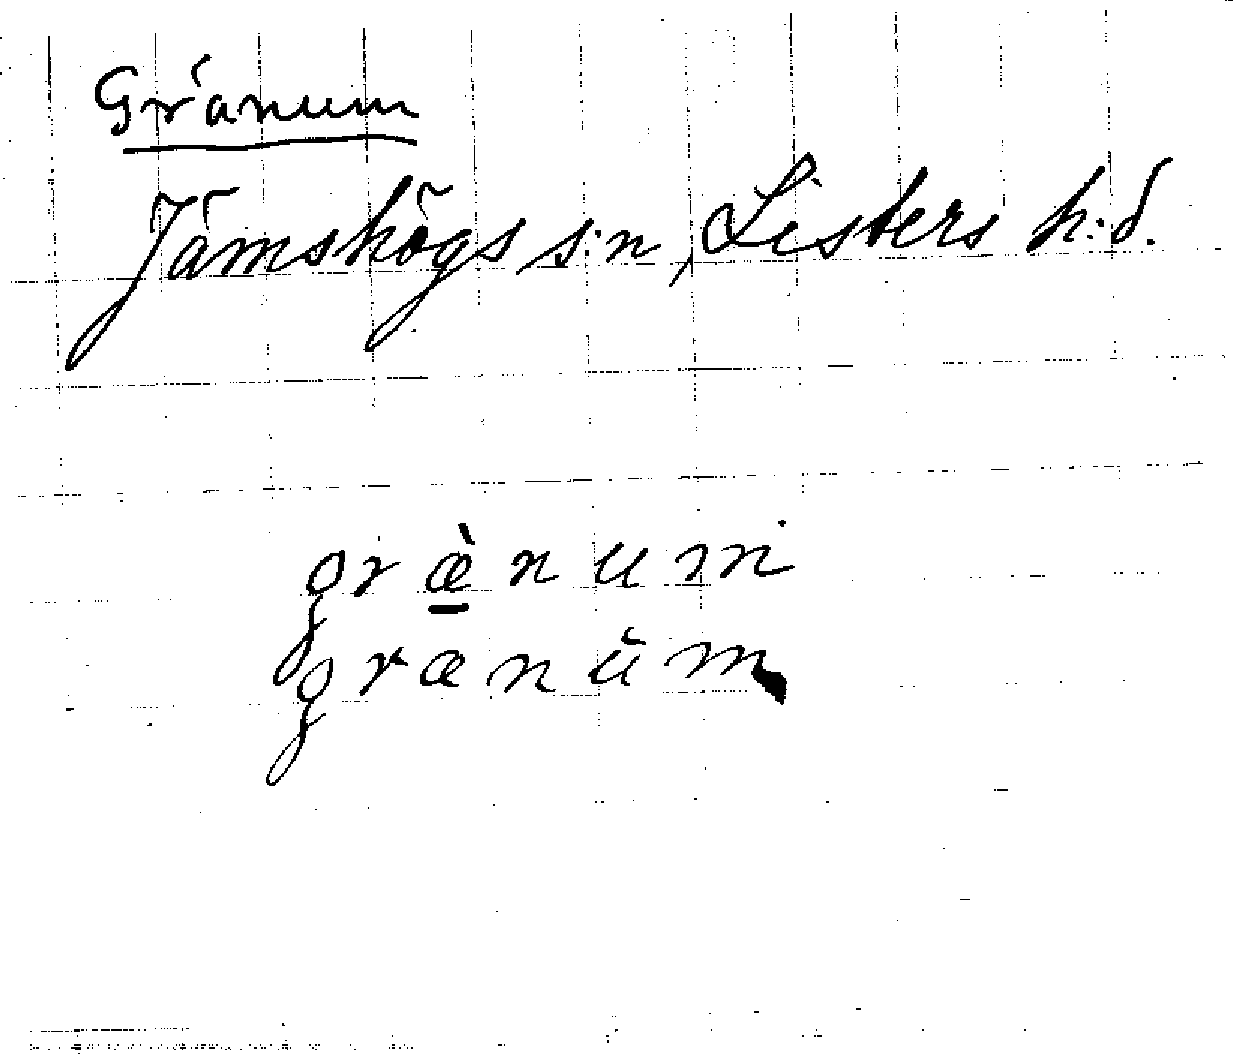 Gränum
Jämshögs s:n, Listers h:d.
græ̱̀num
grænŭm